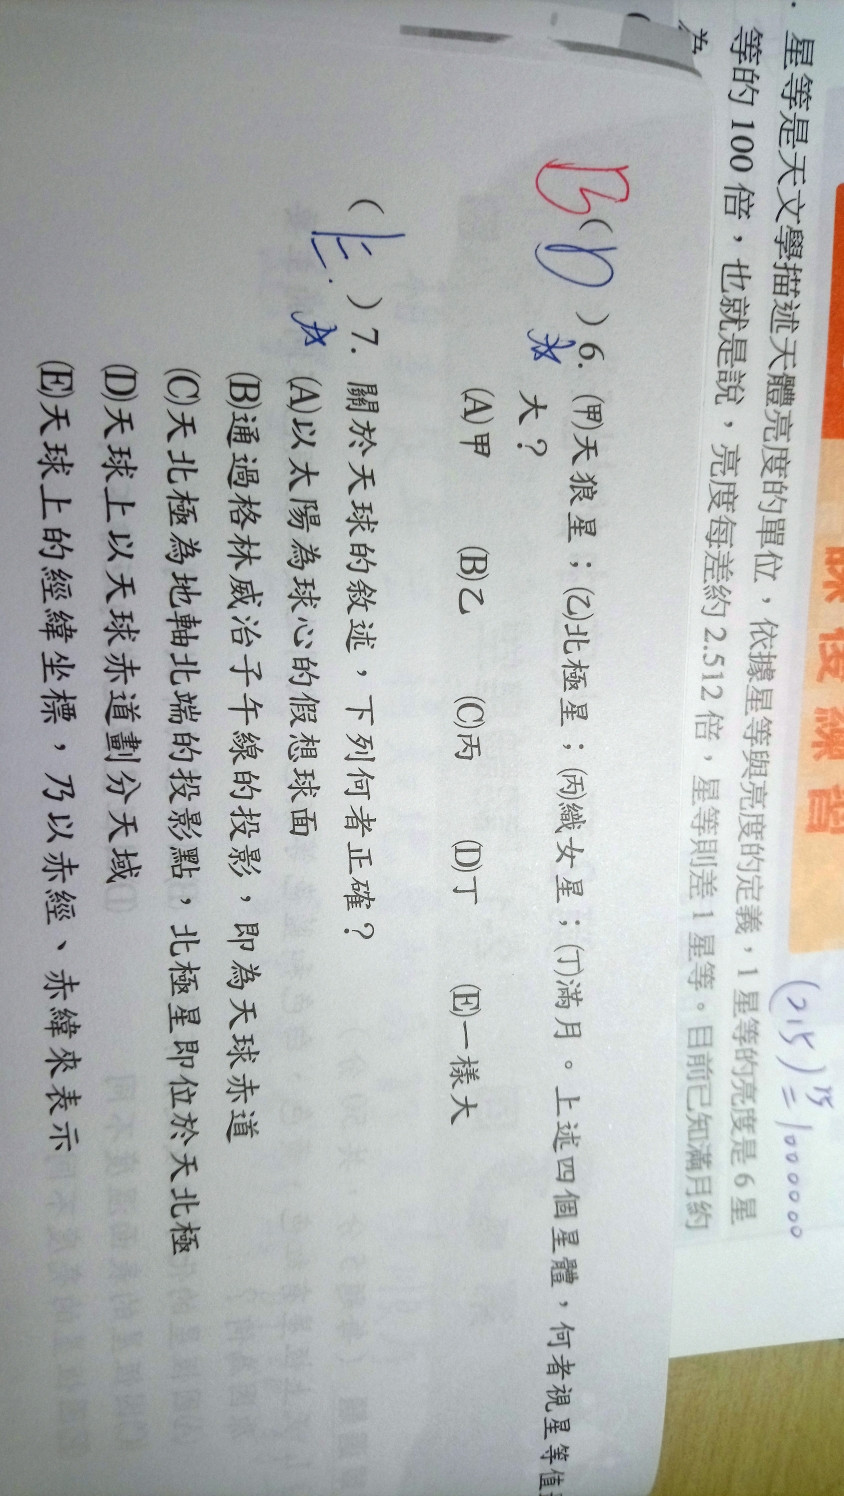 星等是天文學描述天體亮度的單位，依據星等與亮度的定義，1星等的亮度是6星
等的100倍，也就是說，亮度每差約2.512倍，星等則差1星等。目前已知滿月約
為
課後練習
(2.5)¹⁵=1000000
B(D)6.(甲)天狼星；(乙)北極星；(丙)織女星；(丁)滿月。上述四個星體，何者視星等值
大？
(A)甲 (B)乙 (C)丙 (D)丁 (E)一樣大
(E)7.關於天球的敘述，下列何者正確？
(A)以太陽為球心的假想球面
(B)通過格林威治子午線的投影，即為天球赤道
(C)天北極為地軸北端的投影點，北極星即位於天北極
(D)天球上以天球赤道劃分天域
(E)天球上的經緯坐標，乃以赤經、赤緯來表示